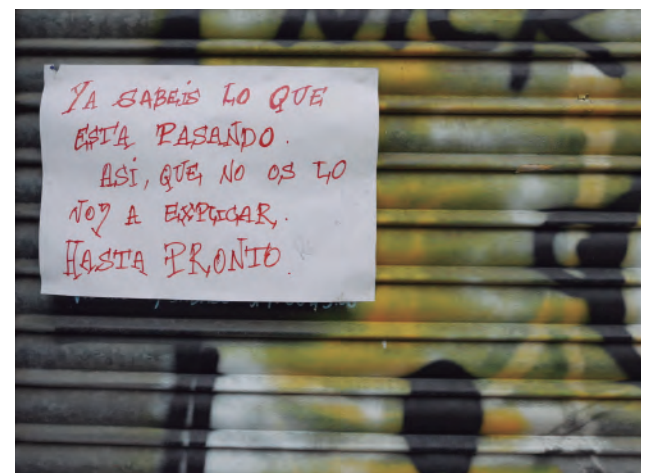 YA SABEIS LO QUE
ESTA PASANDO.
ASÍ, QUE NO OS LO
VOY A EXPLICAR.
HASTA PRONTO.